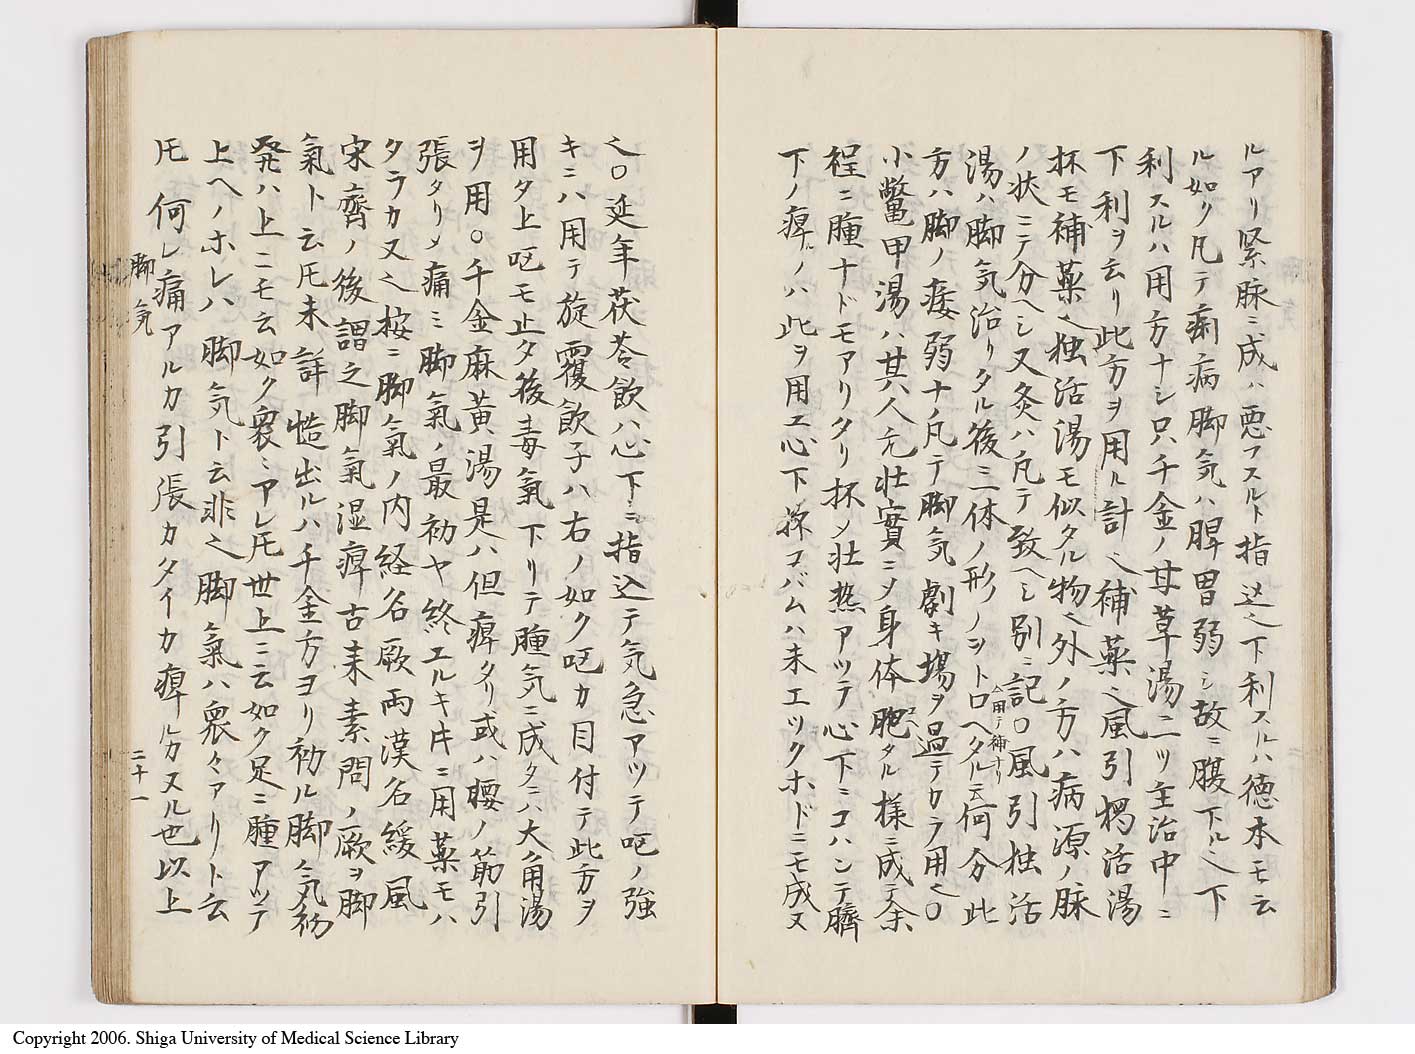 ルアリ緊脉ニ成ハ悪フスルト指㐧之下利スルハ徳本モ云
ル如ク凡テ痢病脚気ハ脾胃弱シ故ニ腹下ル之下
利スルハ用方ナシ只千金ノ甘草湯一ツ主治中ニ
下利ヲ云リ此方ヲ用ル計之補薬之風引独活湯
抔モ補薬之独活湯モ似タル物之外ノ方ハ病源ノ脉
ノ状ニテ分ヘシ又灸ハ凡テ致ヘシ別ニ記〇風引独活
湯ハ脚気治リタル後ニ体ノ形ノヲトロヘタルニ云何分此
用テ補ナリ
方ハ脚ノ痿弱ナノ凡テ脚気劇キ場ヲ過テカラ用之〇
小鱉甲湯ハ其人元壮實ニメ身体肥タル様ニ成テ余
程ニ腫ナドモアリタリ抔シ壮熱アツテ心下ニコハンテ臍
下ノ痺ルノハ此ヲ用エ心下ニコバムハ未エツクホドニモ成又
之〇延年茯苓飲ハ心下ニ指込テ気急アツテ呕ノ強
キニハ用テ旋覆飲子ハ右ノ如ク呕カ目付テ此方ヲ
用タ上呕モ止タ後毒氣下リテ腫気ニ成タニハ大角湯
ヲ用〇千金麻黄湯是ハ但痺タリ或ハ腰ノ筋引
張タリメ痛ミ脚氣ノ最初ヤ終エルキ片ニ用薬モハ
タラカ又之按ニ脚氣ノ内経名厥両漢名緩風
宋齊ノ後謂之脚氣湿痺古耒素問ノ厥ヲ脚
氣ト云圧未詳慥出ルハ千金方ヨリ初ル脚気初
発ハ上ニモ云如ク衆ミアレ圧世上ニ云如ク足ニ腫アツテ
上ヘノホレハ脚気ト云非之脚氣ハ衆々アリト云
圧何レ痛アルカ引張カタイカ痺ルカヌル也以上
脚気
二十一
Copyright 2006. Shiga University of Medical Science Library